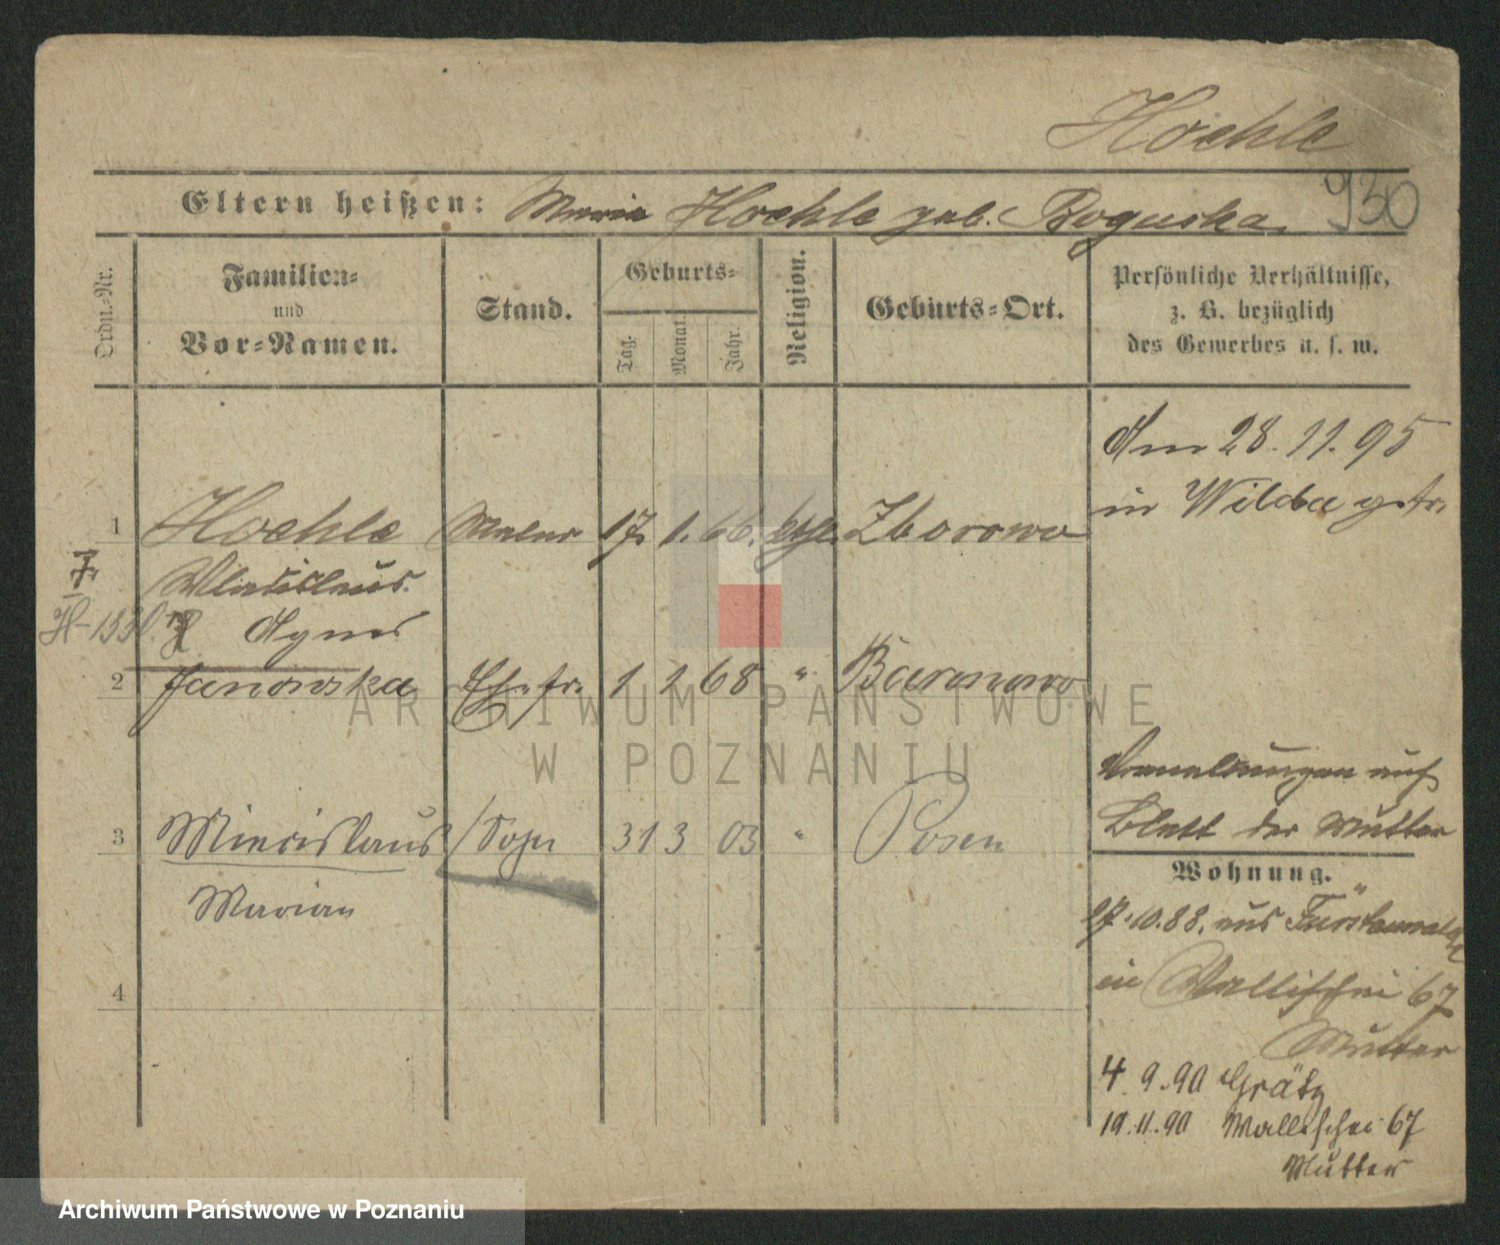 Hoehle
930
Eltern heißen: Maria Hoehle geb. Boguska
Ordn.-Nr.
Familien-
und
Vor-Namen.
Stand.
Geburts-
Tag.
Monat.
Jahr.
Religion.
Geburts-Ort.
Persönliche Verhältnisse,
z. B. bezüglich
des Gewerbes u. s. w.
Am 28.11.95
in Wilda getr.
1 Hoehle Maler 17. 1. 66. kath. Zborowo
Wladislaus.
Agnes
2 Janowska Ehefr. 1 1 68 " Baranowo
auf
Blatt der Mutter
3 Miecislaus Sohn 31 3 03 " Posen
Marian
4
Wohnung.
27.10.88. aus Fürstenwalde
in Wallischei 67
Mutter
4.9.90 Grätz
19.11.90 Wallischei 67
Mutter
ARCHIWUM PAŃSTWOWE
W POZNANIU
Archiwum Państwowe w Poznaniu